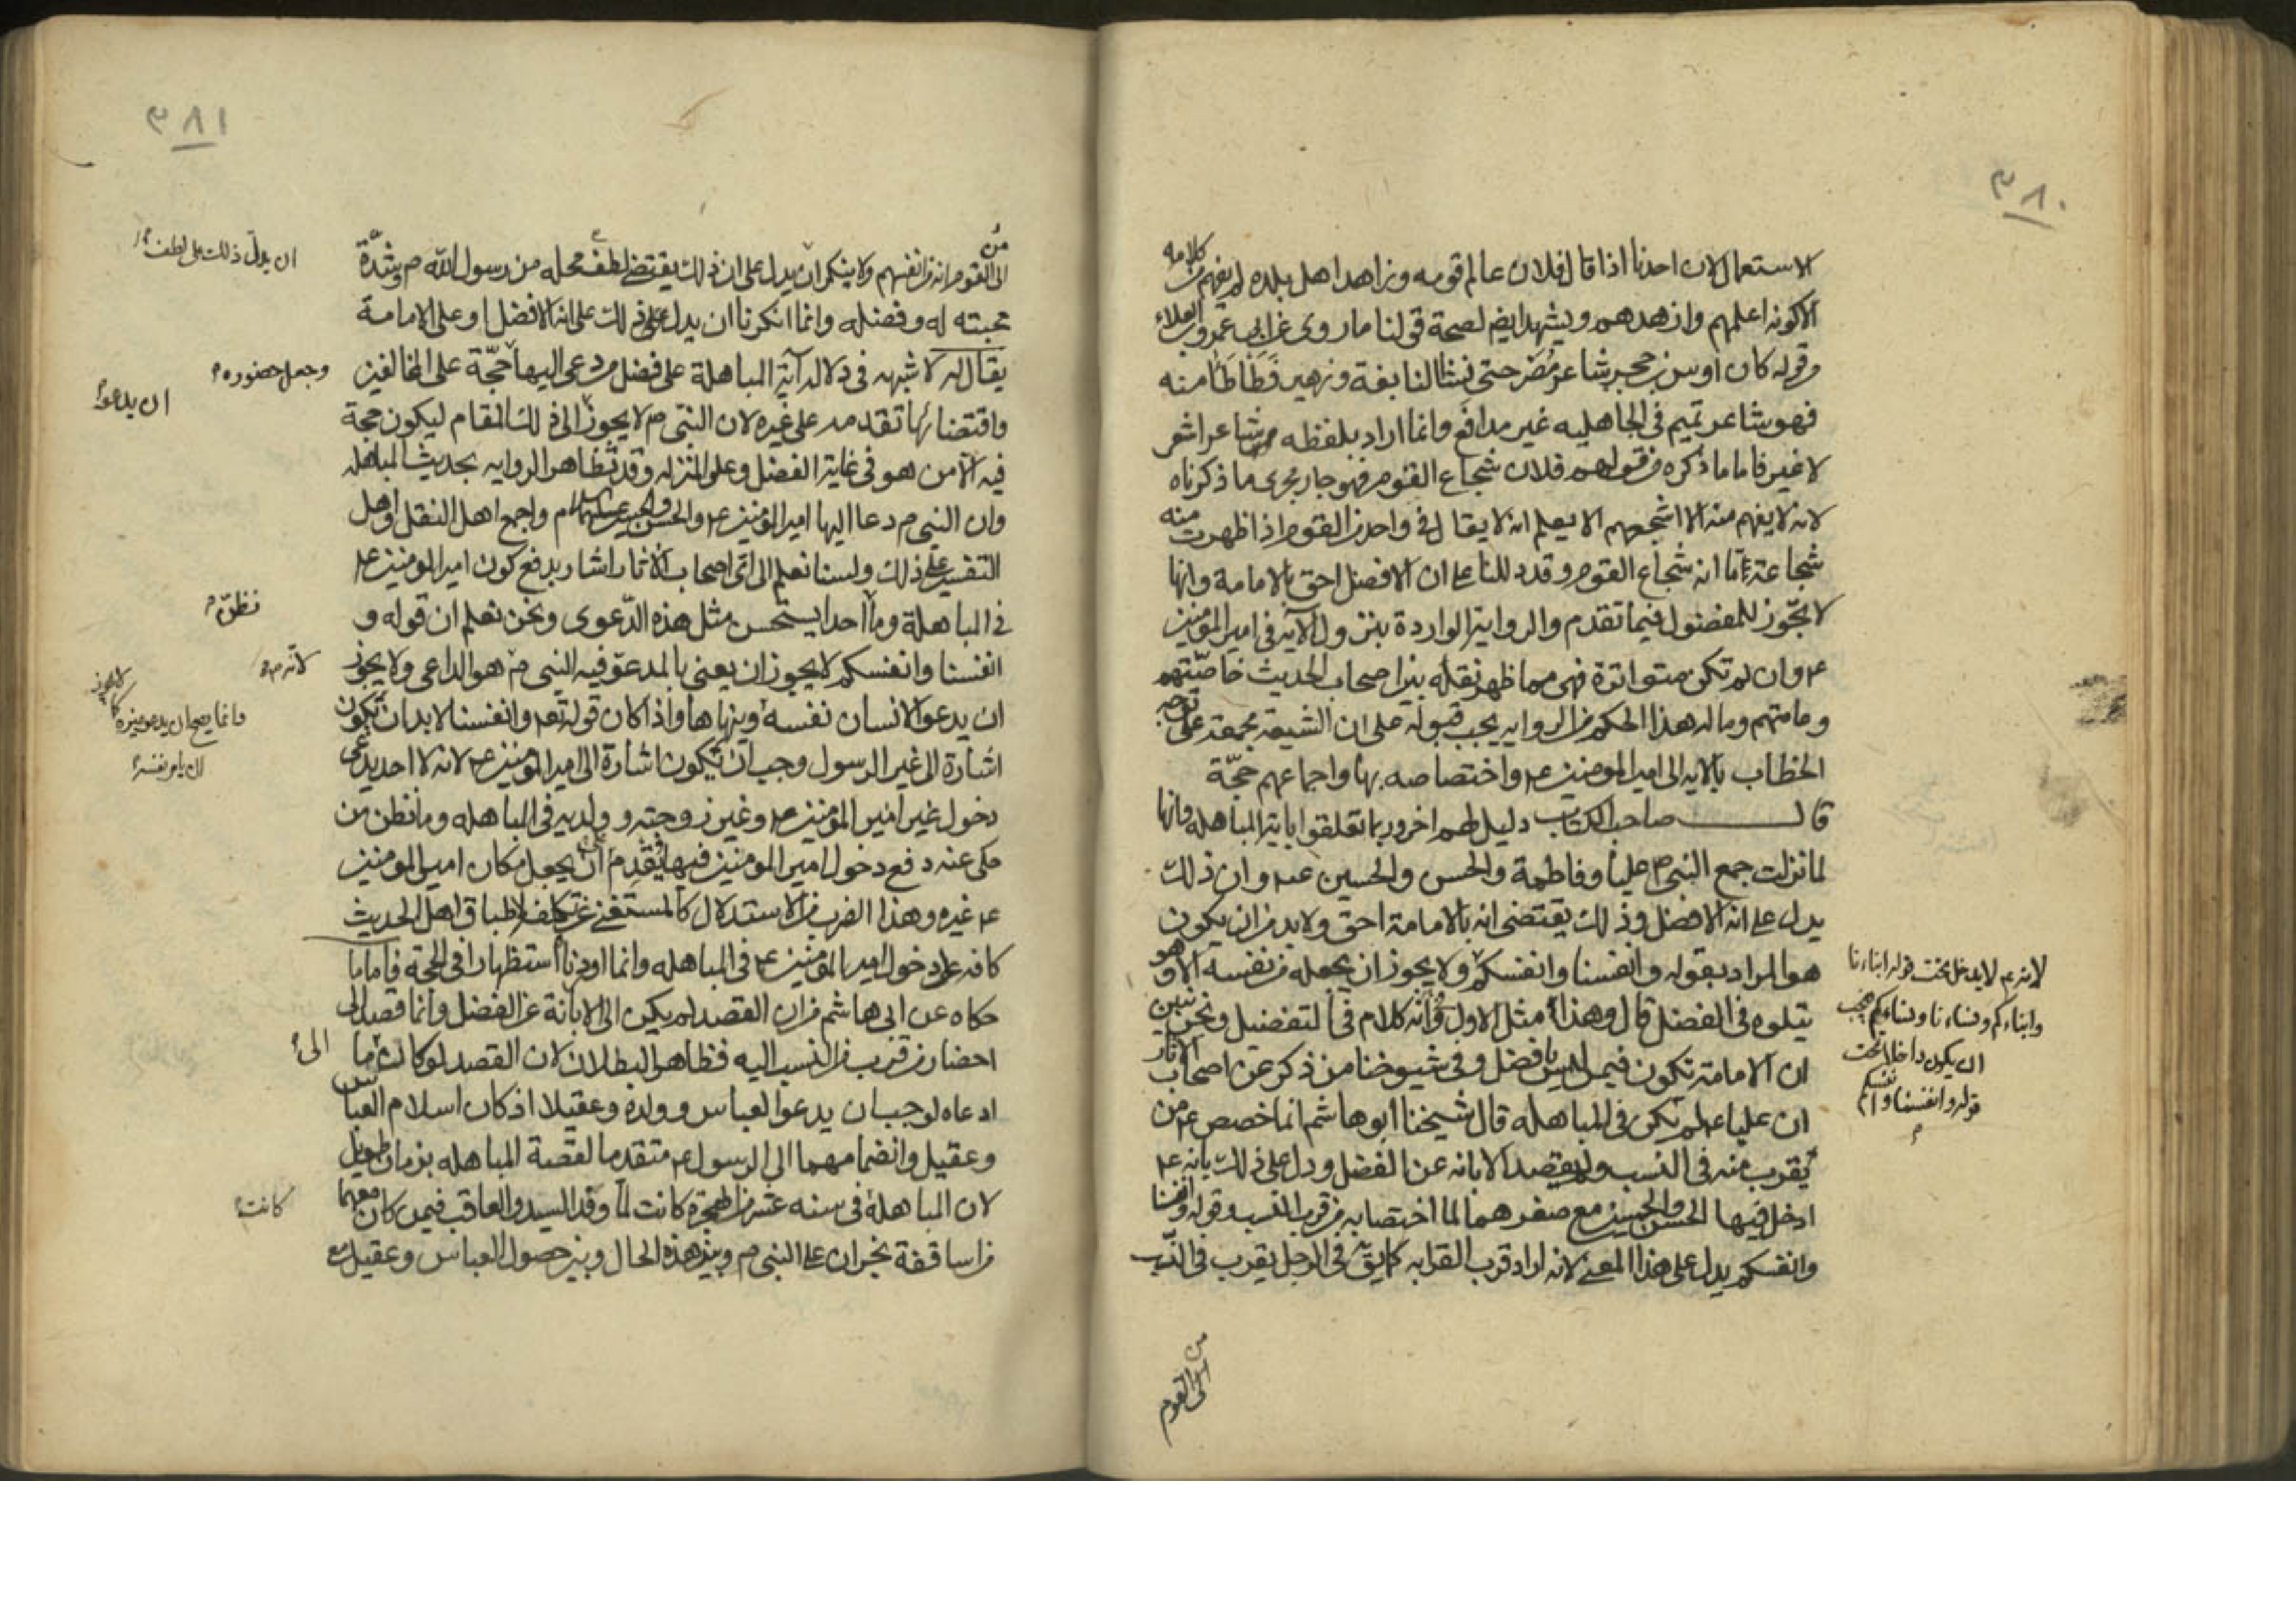 ٣٨٠
الاستعمال لان احدنا اذا قال فلان عالم قومه وزاهد اهل بلده لم يفهم من كلامه
الا كونه اعلمهم وازهدهم ويشهد ايضا لصحة قولنا ما روى عن ابي عمرو بن العلاء
من قوله كان اوس بن حجر شاعر مُضَر حتى نشأ النابغة وزهير فَطَأطَأَا منه
فهو شاعر تميم فى الجاهليه غير مدافَع وانما اراد بلفظه شاعر اشعر
لا غير فاما ما ذكره من قولهم فلان شجاع القوم فهو جار مجرى ما ذكرناه
لانه لا يفهم منه الا اشجعهم الا يعلم انه لا يقال فى واحد من القوم اذا ظهرت منه
شجاعة ما انه شجاع القوم وقد دللنا على ان الافضل احق بالامامة وانها
لا تجوز للمفضول فيما تقدم والرواية الواردة بنزول الآية فى امير المؤمنين
ع وان لم تكن متواترة فهى مما ظهر نقله بين اصحاب الحديث خاصتهم
وعامتهم وما له هذا الحكم من الروايه يجب قبوله على ان الشيعة مجمعة على توجه
الخطاب بالايه الى امير المومنين ع واختصاصه بها واجماعهم حجّة
قال صاحب الكتاب دليل لهم اخر وربما تعلقوا باية المباهله وانها
لما نزلت جمع النبي ص عليا وفاطمة والحسن والحسين ع وان ذلك
يدل على انه الافضل وذلك يقتضى انه بالامامة احق ولا بد من ان يكون
هو المراد بقوله وانفسنا وانفسكم ولا يجوز ان يجعله من نفسه الا وهو
يتلوه فى الفضل قال وهذا مثل الاول فى انه كلام فى التفضيل ونحن نبين
ان الامامة تكون فيمن ليس بافضل وفى شيوخنا من ذكر عن اصحاب الآثار
ان عليا ع لم يكن فى المباهله قال شيخنا ابو هاشم انما خصص ع من
يقرب منه فى النسب ولم يقصد الابانه عن الفضل ودل على ذلك بانه ع
ادخل فيها الحسن والحسين مع صغرهما لما اختصا به من قرب النسب وقوله وانفسنا
وانفسكم يدل على هذا المعنى لانه اراد قرب القرابه كما يق فى الرجل يقرب فى النسب
لانه ع لا يدخل تحت قوله ابناءنا
وابناءكم ونساءنا ونساءكم فيجب
ان يكون داخلا تحت
قوله وانفسنا وانفسكم
من القوم
٣٨١
من القوم انه من انفسهم ولا ينكر ان يدل على ان ذلك يقتضى لطف محله من رسول الله ص وشدّة
محبته له وفضله وانما انكرنا ان يدل ذلك على انه الافضل او على الامامة
يقال له لا شبهه فى دلالة آية المباهلة على فضل من دعى اليها حجّة على المخالفين
واقتضائها تقدمه على غيره لان النبي ص لا يجوز الى ذلك المقام ليكون حجة
فيه الا من هو فى غاية الفضل وعلو المنزله وقد تظاهر الروايه بحديث المباهله
وان النبي ص دعا اليها امير المؤمنين ع والحسن والحسين عليهما السلام واجمع اهل النقل واهل
التفسير على ذلك ولسنا نعلم الى اىّ اصحاب الآثار اشار بدفع كون امير المؤمنين ع
فى المباهلة وما احدا يستحسن مثل هذه الدّعوى ونحن نعلم ان قوله و
انفسنا وانفسكم لا يجوز ان يعنى بالمدعو فيه النبي ص هو الداعى ولا يجوز
ان يدعو الانسان نفسه وينهاها واذا كان قوله تع وانفسنا لا بد ان تكون
اشارة الى غير الرسول وجب ان تكون اشارة الى امير المؤمنين ع لانه لا احد يدعى
دخول غير امير المؤمنين ع وغير زوجته وولديه فى المباهله وما نظن من
حكى عنه دفع دخول امير المومنين فيها يُقْدِم ان يجعل مكان امير المومنين
ع غيره وهذا الضرب من الاستدلال كالمستغنى عن تكلف لاطباق اهل الحديث
كافه على دخول امير المؤمنين ع فى المباهله وانما اوردنا استظهارا فى الحجة فاما ما
حكاه عن ابى هاشم من ان القصد لم يكن الى الابانة عن الفضل وانما قصد الى
احضار من قرب من النسب اليه فظاهر البطلان لان القصد لو كان ما
ادعاه لوجب ان يدعو العباس وولده وعقيلا اذ كان اسلام العباس
وعقيل وانضمامهما الى الرسول ع متقدما لقصة المباهله بزمان طويل
لان المباهلة فى سنه عشر من الهجرة كانت لما وفد السيد والعاقب فيمن كان معهما
من اساقفة نجران على النبي ص وبين هذه الحال وبين حصول العباس وعقيل مع
ان يدل ذلك على لطف
وجعل حضوره
ان يدعو
نظن
لانه ص
وانما يصح ان يدعو غيره
كما لا يجوز
ان يامر نفسه
الى
كانت